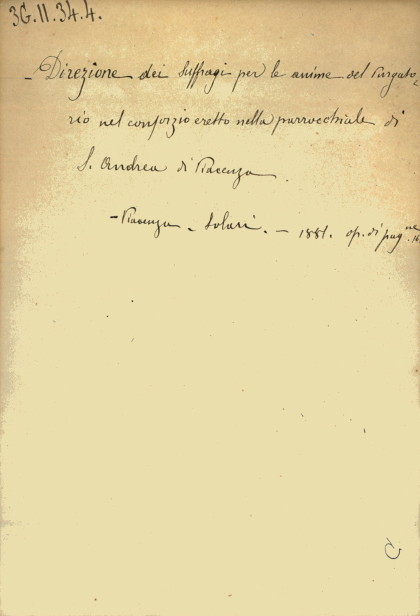 3G.II.34.4.
- Direzione dei Suffragi per le anime del Purgato=
rio nel consorzio eretto nella parrocchiale di
S. Andrea di Piacenza.
- Piacenza - Solari. - 1881. op. di pagne. 16
C